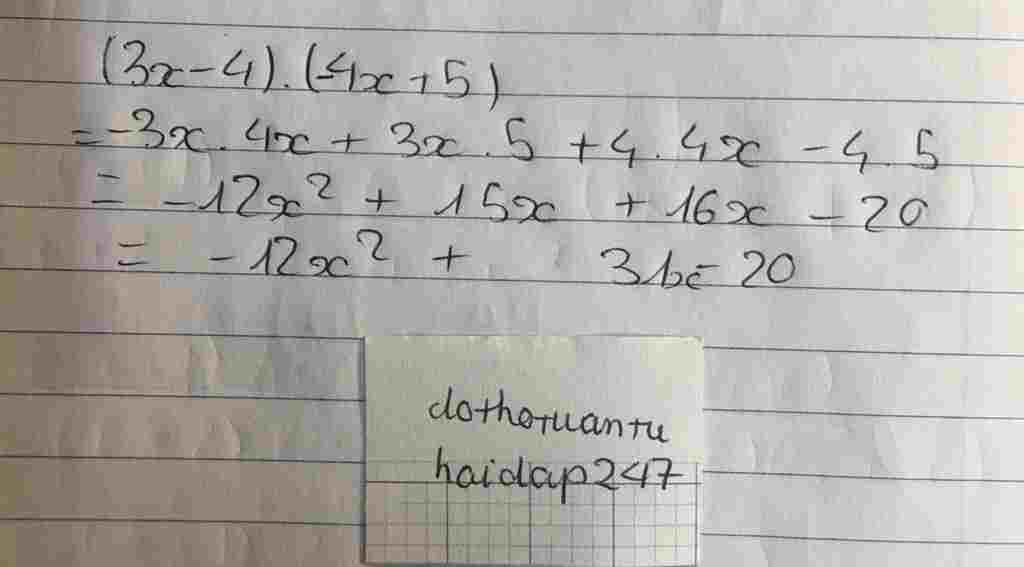 (3x-4).(-4x+5)
=-3x.4x+3x.5+4.4x-4.5
= -12x² + 15x + 16x - 20
= -12x² + 31x - 20
dothotuantu
haidap247